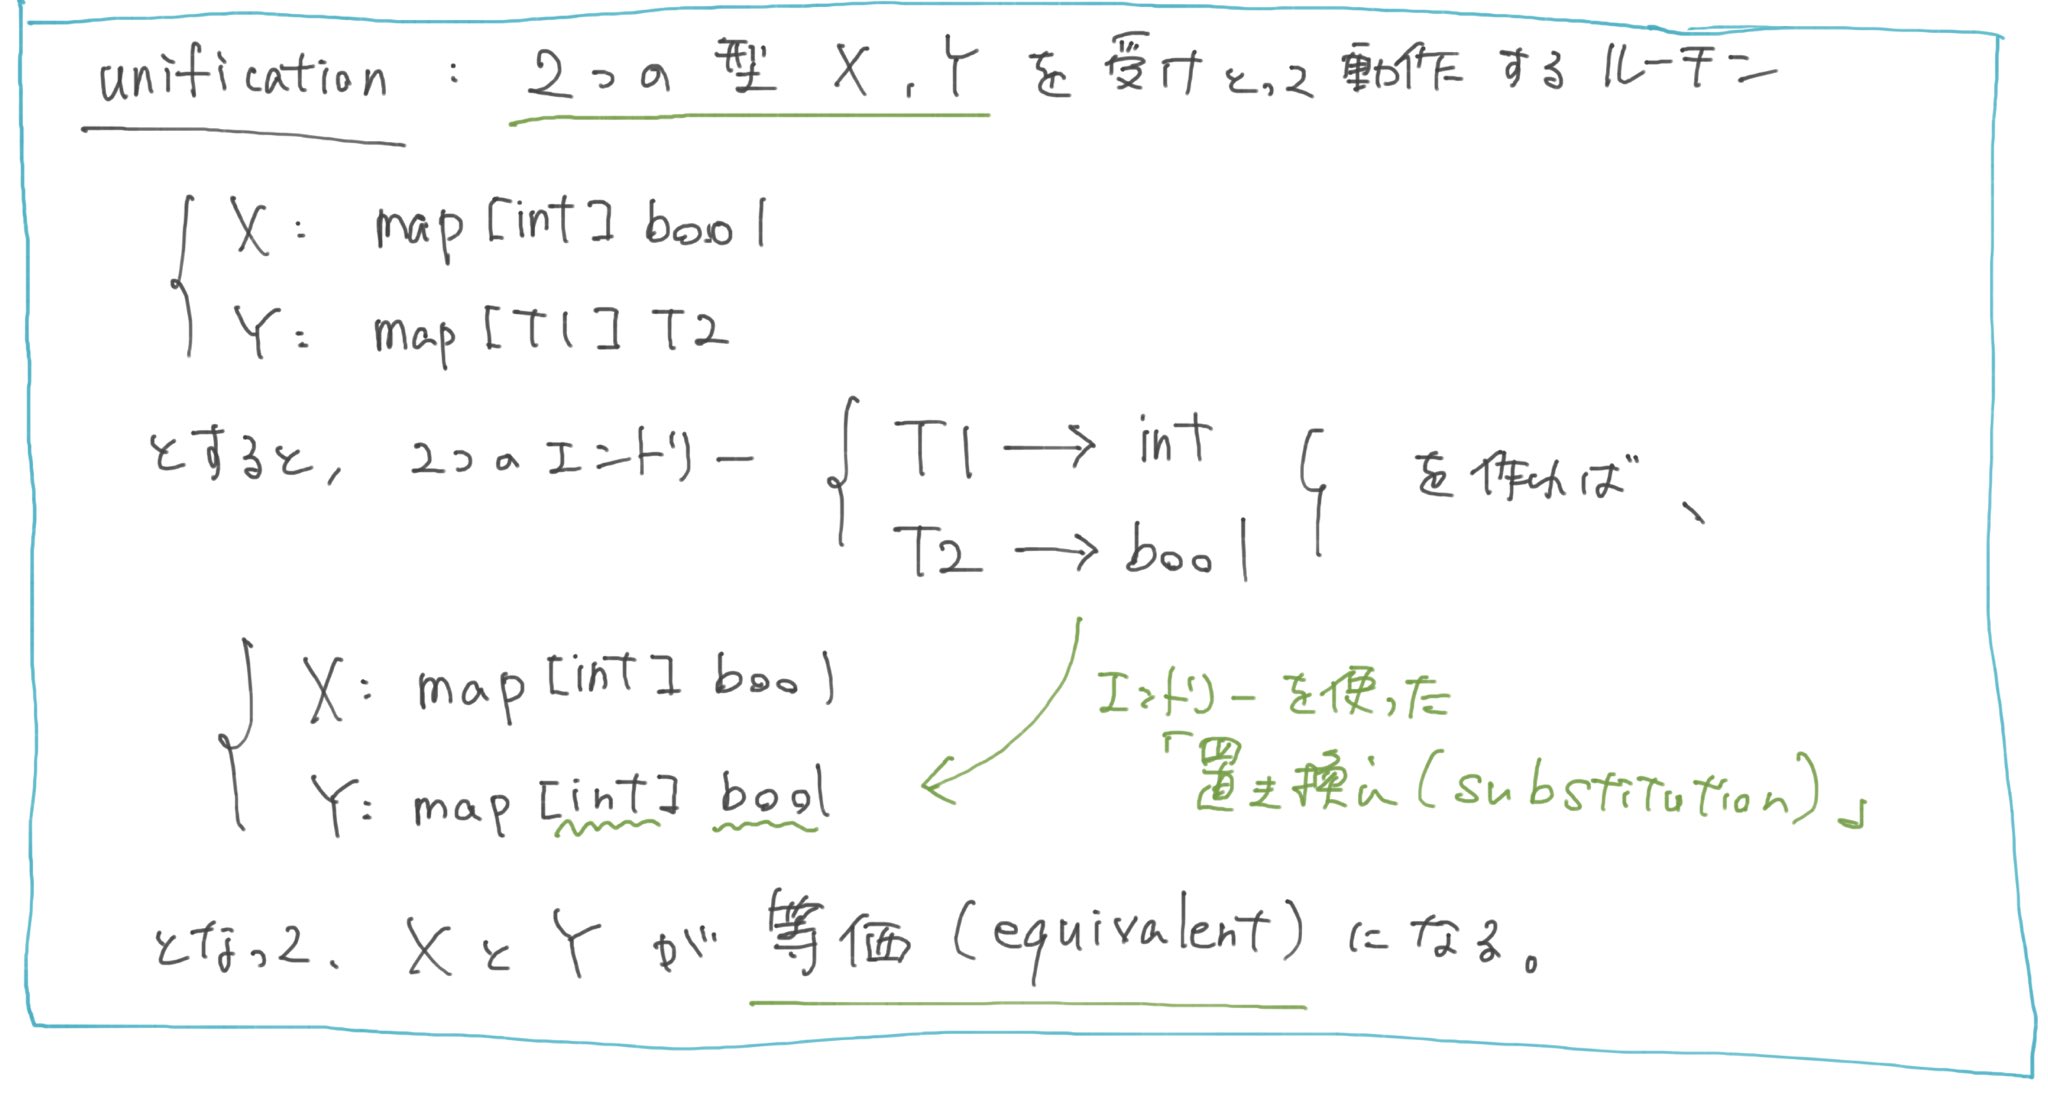 unification : 2つの型 X, Y を受けとって動作するルーチン
X: map[int] bool
Y: map[T1] T2
とすると, 2つのエントリー { T1 → int
T2 → bool } を作れば、
X: map[int] bool
Y: map[int] bool
エントリーを使った
「置き換え(substitution)」
となって、XとYが等価(equivalent)になる。